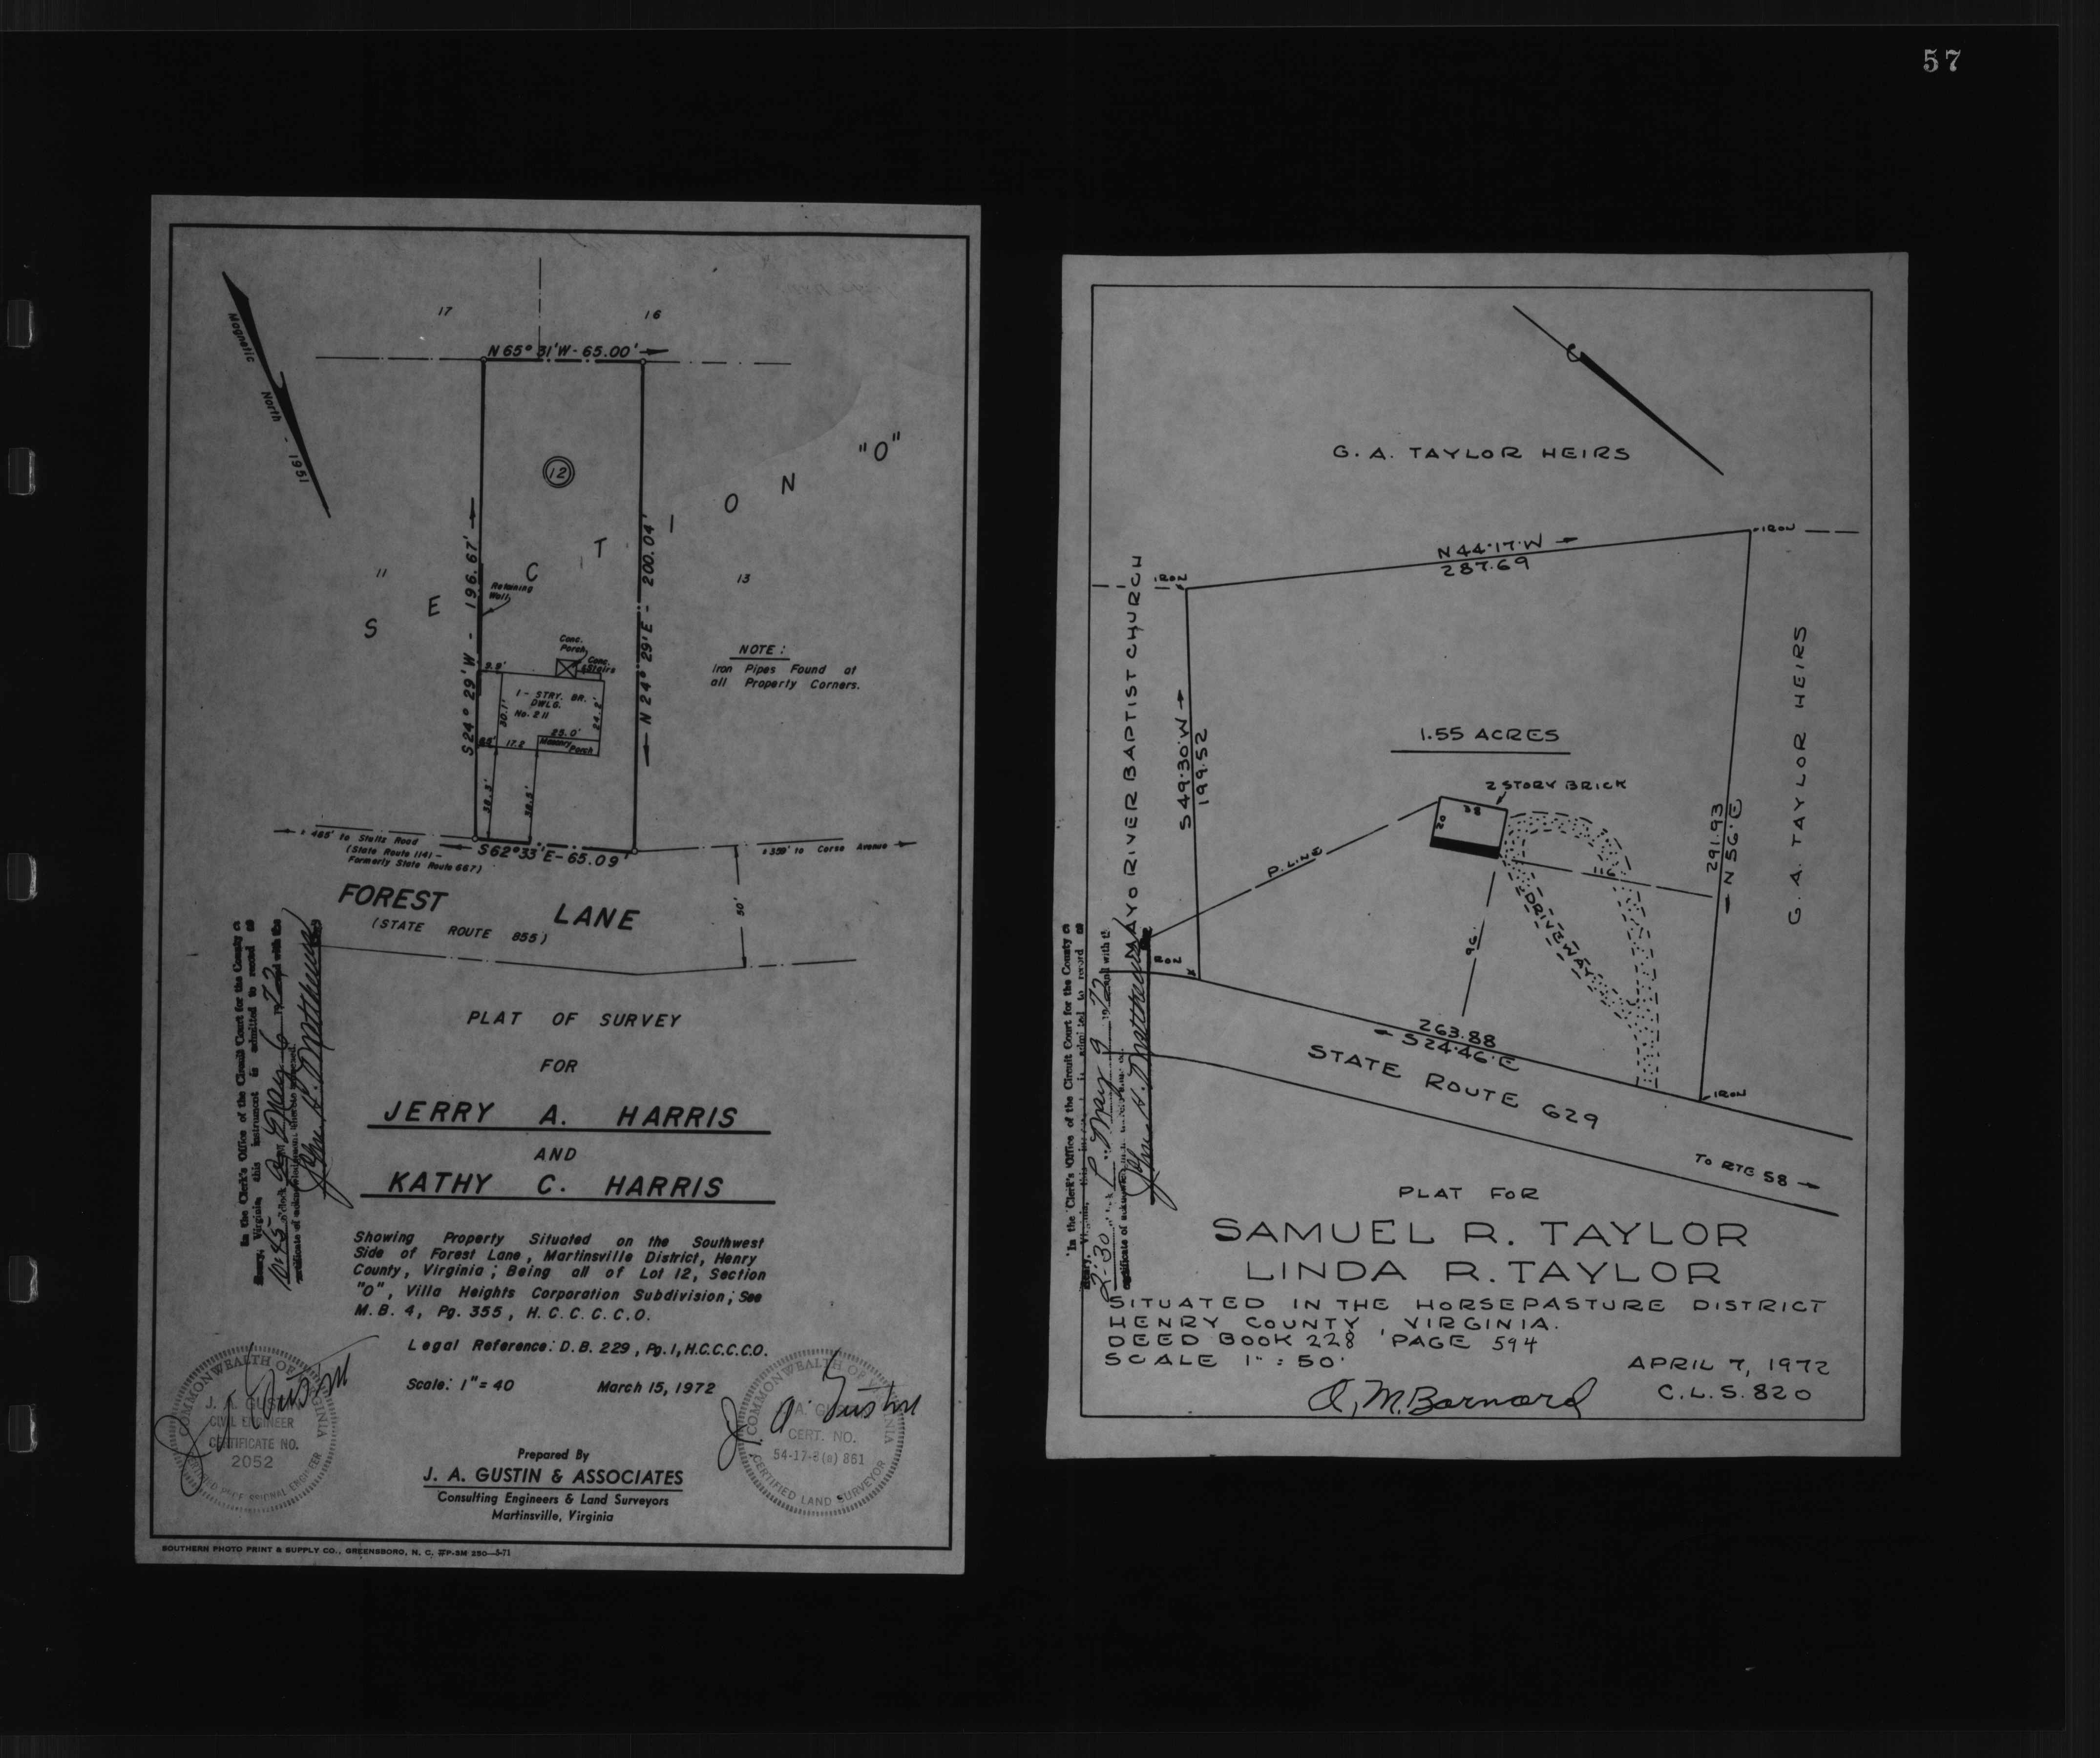 57
Magnetic North - 1951
17
16
N 65° 31' W - 65.00'
12
"O"
S E C T I O N
S 24° 29' W - 196.67'
N 24° 29' E - 200.04'
11
13
Retaining
Wall
Conc.
Porch
Conc.
Stairs
9.9'
1 - STRY. BR.
DWLG.
No. 211
30.1'
24.2'
25.0'
17.2
Masonry
Porch
38.3'
38.5'
NOTE :
Iron Pipes Found at
all Property Corners.
± 465' to Stultz Road
(State Route 1141 -
Formerly State Route 667)
S 62° 33' E - 65.09'
± 359' to Corse Avenue
50'
FOREST LANE
(STATE ROUTE 855)
PLAT OF SURVEY
FOR
JERRY A. HARRIS
AND
KATHY C. HARRIS
Showing Property Situated on the Southwest
Side of Forest Lane, Martinsville District, Henry
County, Virginia ; Being all of Lot 12, Section
"O", Villa Heights Corporation Subdivision; See
M. B. 4, Pg. 355, H. C. C. C. C. O.
Legal Reference: D. B. 229, Pg. 1, H.C.C.C.C.O.
Scale: 1" = 40 March 15, 1972
Prepared By
J. A. GUSTIN & ASSOCIATES
Consulting Engineers & Land Surveyors
Martinsville, Virginia
In the Clerk's Office of the Circuit Court for the County of
Henry, Virginia this instrument is admitted to record at
10:45 o'clock A M May 6 1972 and with the
certificate of acknowledgment thereto annexed.
John H. Matthews
COMMONWEALTH OF VIRGINIA
J. A. GUSTIN
CIVIL ENGINEER
CERTIFICATE NO.
2052
CERTIFIED PROFESSIONAL ENGINEER
J. A. Gustin
COMMONWEALTH OF VIRGINIA
J. A. GUSTIN
CERT. NO.
54-17-3(a) 861
CERTIFIED LAND SURVEYOR
J. A. Gustin
SOUTHERN PHOTO PRINT & SUPPLY CO., GREENSBORO, N. C. #P-SM 250—5-71
G. A. TAYLOR HEIRS
IRON
N 44·17·W
287.69
IRON
MAYO RIVER BAPTIST CHURCH
S 49·30·W
199.52
1.55 ACRES
2 STORY BRICK
38
20
291.93
N 56° E
G. A. TAYLOR HEIRS
P. LINE
116
96
DRIVEWAY
IRON
263.88
S 24·46·E
STATE ROUTE 629
IRON
TO RTE 58
PLAT FOR
SAMUEL R. TAYLOR
LINDA R. TAYLOR
SITUATED IN THE HORSEPASTURE DISTRICT
HENRY COUNTY, VIRGINIA.
DEED BOOK 228, PAGE 594
SCALE 1" = 50'
APRIL 7, 1972
C.L.S. 820
O, M. Barnard
In the Clerk's Office of the Circuit Court for the County of
Henry, Virginia, this instrument is admitted to record at
2:30 P May 9 1972 and with the
certificate of
John H. Matthews